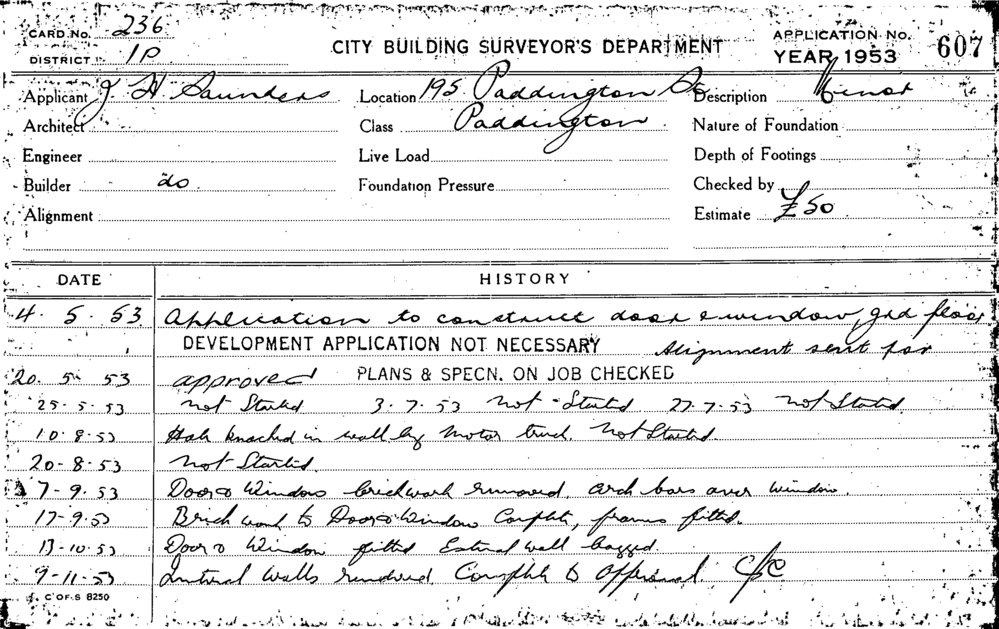 CARD No. 236
DISTRICT 1P
CITY BUILDING SURVEYOR'S DEPARTMENT
APPLICATION No. 607
YEAR 1953
Applicant J. H Saunders
Location 195 Paddington St
Description Minor
Architect
Class Paddington
Nature of Foundation
Engineer
Live Load
Depth of Footings
Builder do
Foundation Pressure
Checked by
Alignment
Estimate £50
DATE HISTORY
4. 5. 53 Application to construct door & window grd floor
DEVELOPMENT APPLICATION NOT NECESSARY Alignment sent for
20. 5. 53 approved PLANS & SPECN. ON JOB CHECKED
25.5.53 Not Started 3.7.53 Not Started 27.7.53 Not Started
10.8.53 Hole knocked in wall by Motor truck. Not Started.
20-8.53 Not Started.
7-9.53 Door & Window brickwork removed, arch bars over window.
17-9.53 Brick work to Door & Window Complete, frames fitted.
13-10.53 Door & Window fitted External wall bagged.
9-11-53 Internal walls rendered Complete to Approval.
C OF S 8250